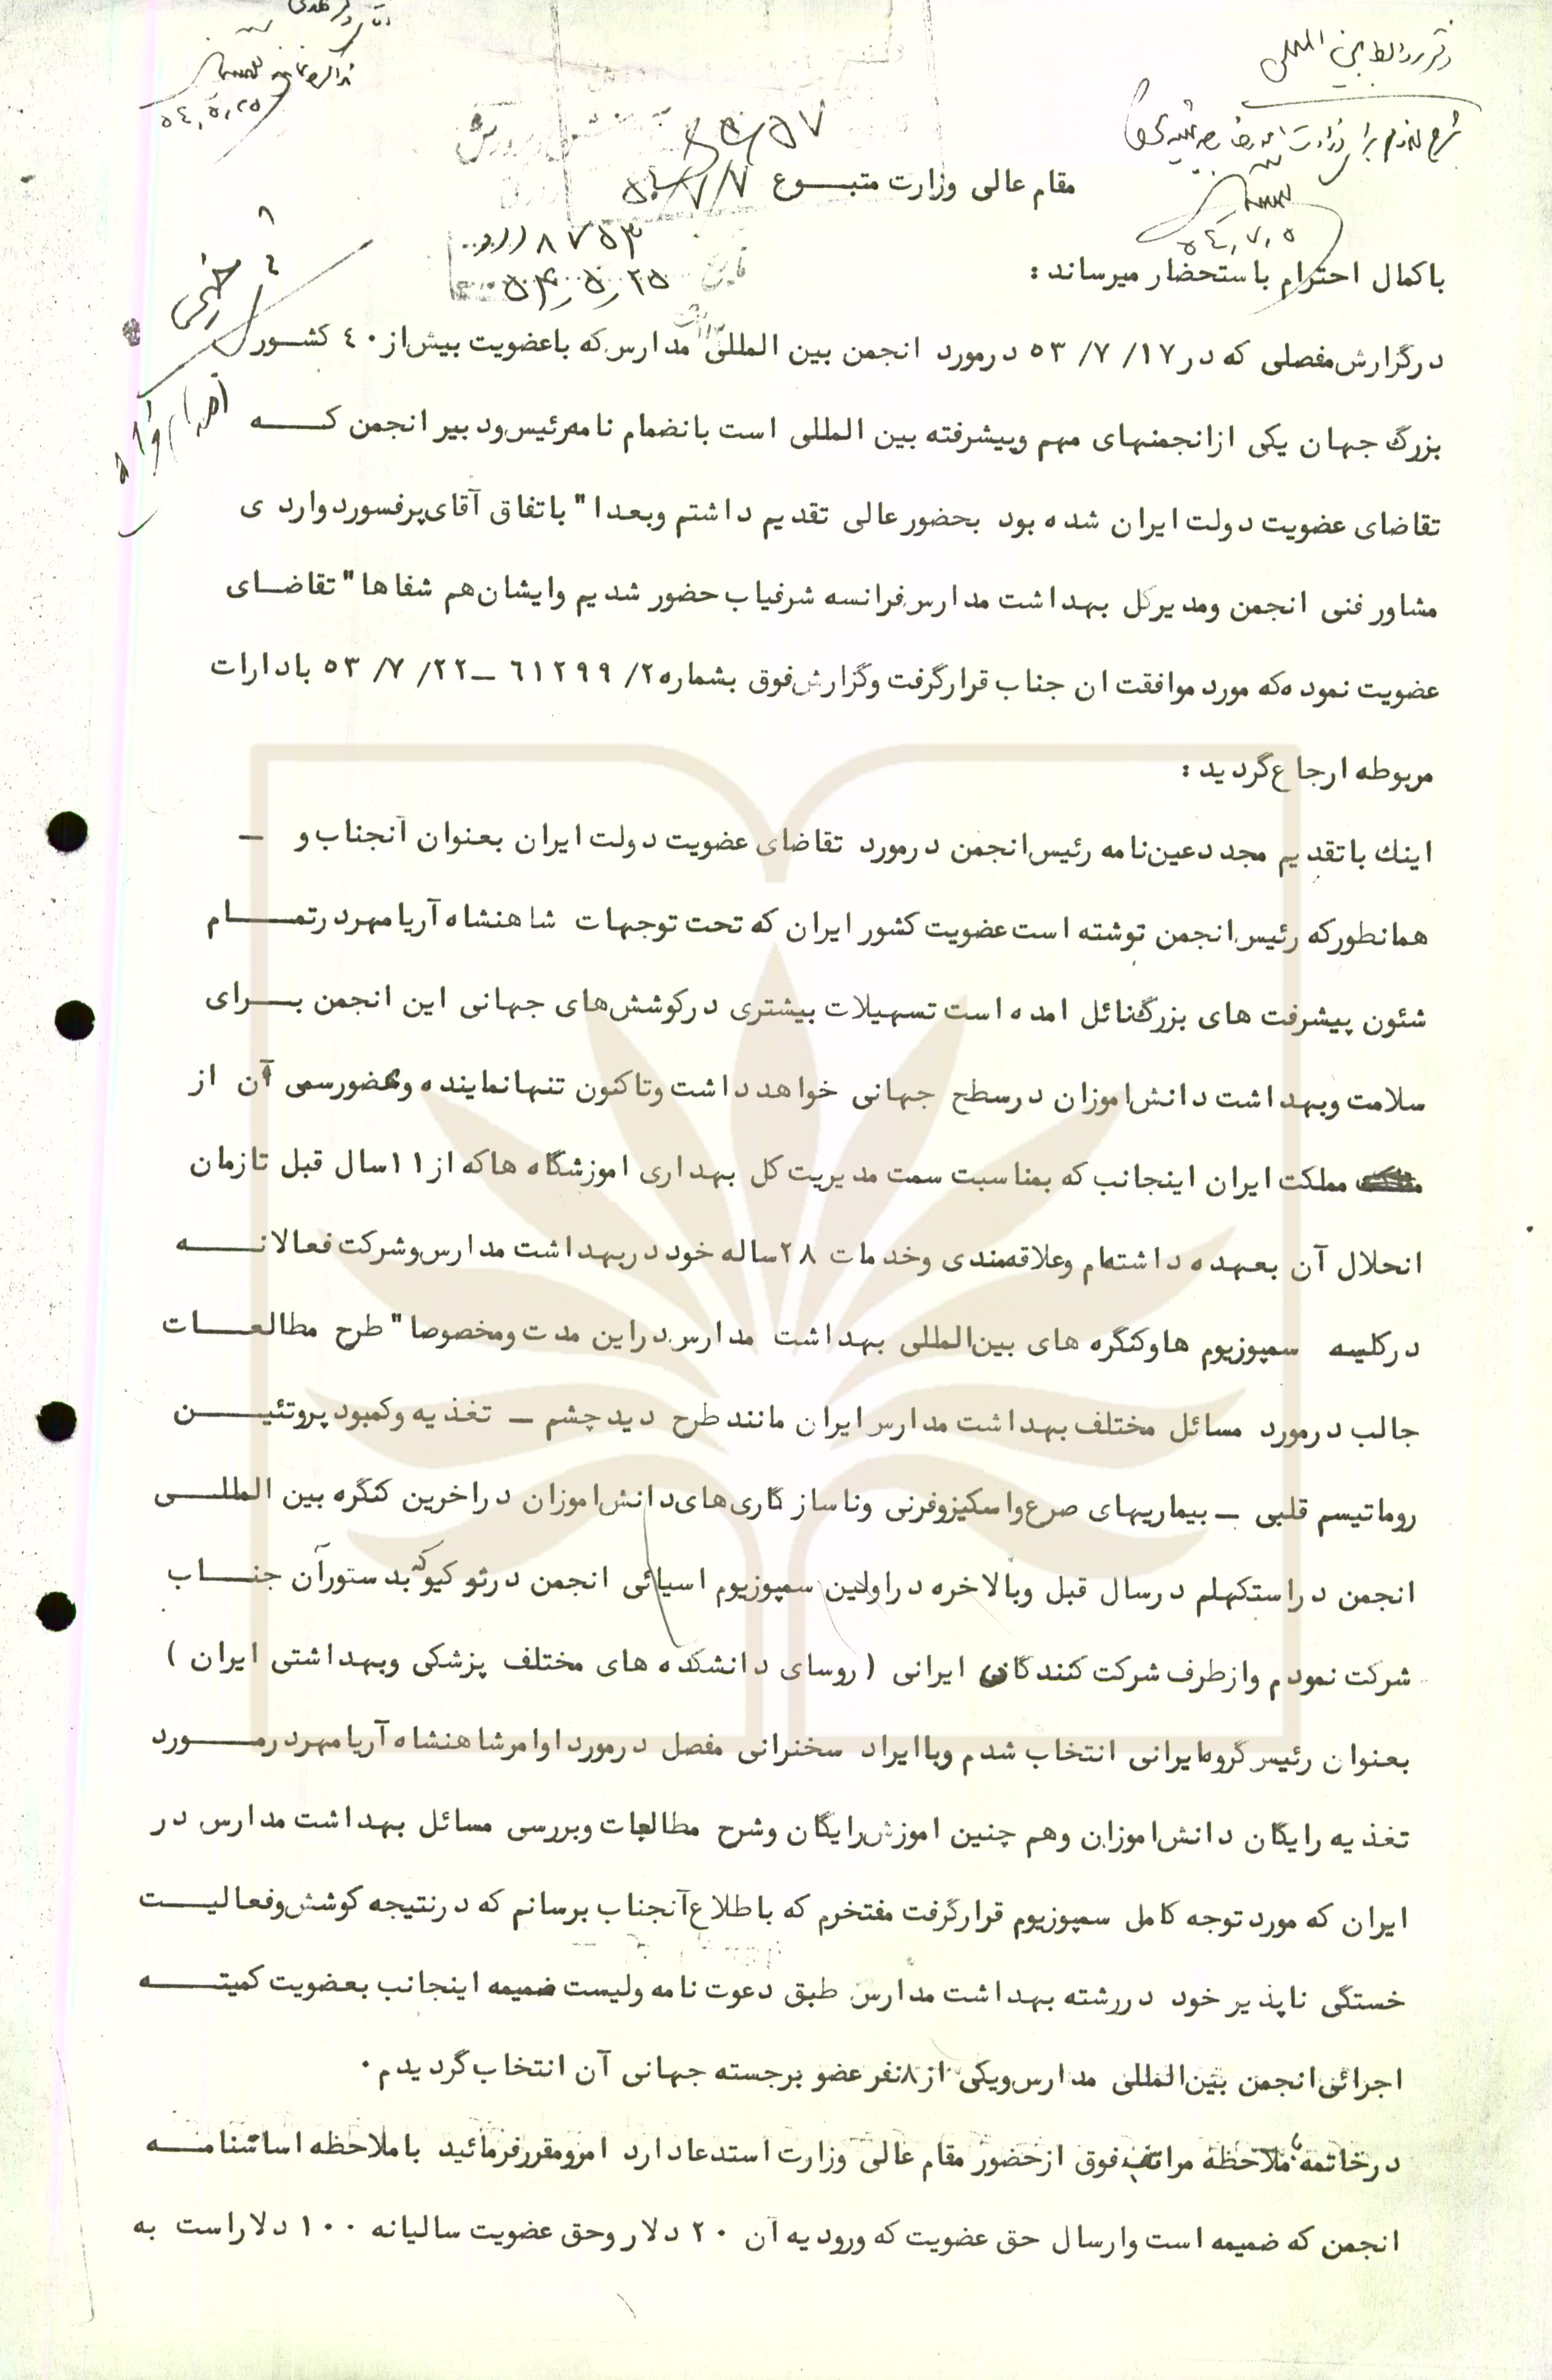 دفتر روابط بین المللی
۵۴٫۵٫۲۵
۵۴٫۷٫۵
مقام عالی وزارت متبـــوع
۸۷۵۳
تاریخ ۵۴٫۵٫۲۵
باکمال احترام باستحضار میرساند :
درگزارش مفصلی که در ۱۷ /۷ /۵۳ درمورد انجمن بین المللی مدارس که باعضویت بیش از ۴۰ کشـــور
بزرگ جهان یکی ازانجمنهای مهم وپیشرفته بین المللی است بانضمام نامه رئیس ودبیر انجمن کـــه
تقاضای عضویت دولت ایران شده بود بحضور عالی تقدیم داشتم وبعدا" باتفاق آقای پرفسور دواردی
مشاور فنی انجمن ومدیرکل بهداشت مدارس فرانسه شرفیاب حضور شدیم وایشان هم شفاها" تقاضـای
عضویت نموده که مورد موافقت ان جناب قرارگرفت وگزارش فوق بشماره ۲/ ۶۱۲۹۹ ــ ۲۲/ ۷/ ۵۳ بادارات
مربوطه ارجاع گردید :
اینك باتقدیم مجدد عین نامه رئیس انجمن درمورد تقاضای عضویت دولت ایران بعنوان آنجناب و ــ
همانطورکه رئیس انجمن توشته است عضویت کشور ایران که تحت توجهات شاهنشاه آریامهر درتمـــام
شئون پیشرفت های بزرگ نائل امده است تسهیلات بیشتری درکوشش های جهانی این انجمن بـــرای
سلامت وبهداشت دانش اموزان درسطح جهانی خواهد داشت وتاکنون تنها نماینده وعضورسمی آن از
مملکت ایران اینجانب که بمناسبت سمت مدیریت کل بهداری اموزشگاه هاکه از ۱۱ سال قبل تازمان
انحلال آن بعهده داشته ام وعلاقه مندی وخدمات ۲۸ ساله خود دربهداشت مدارس وشرکت فعالانـــه
درکلیه سمپوزیوم هاوکنگره های بین المللی بهداشت مدارس دراین مدت ومخصوصا" طرح مطالعـــات
جالب درمورد مسائل مختلف بهداشت مدارس ایران مانند طرح دید چشم ــ تغذیه وکمبود پروتئیـــن
روماتیسم قلبی ــ بیماریهای صرع واسکیزوفرنی وناسازگاری های دانش اموزان دراخرین کنگره بین المللـــی
انجمن دراستکهلم درسال قبل وبالاخره دراولین سمپوزیوم اسیائی انجمن درتوکیو که بدستورآن جنـــاب
شرکت نمودم وازطرف شرکت کنندگان ایرانی ( روسای دانشکده های مختلف پزشکی وبهداشتی ایران )
بعنوان رئیس گروه ایرانی انتخاب شدم وباایراد سخنرانی مفصل درمورد اوامرشاهنشاه آریامهر درمـــورد
تغذیه رایگان دانش اموزان وهم چنین اموزش رایگان وشرح مطالعات وبررسی مسائل بهداشت مدارس در
ایران که مورد توجه کامل سمپوزیوم قرارگرفت مفتخرم که باطلاع آنجناب برسانم که درنتیجه کوشش وفعالیـــت
خستگی ناپذیر خود دررشته بهداشت مدارس طبق دعوت نامه ولیست ضمیمه اینجانب بعضویت کمیتـــه
اجرائی انجمن بین المللی مدارس ویکی از ۸ نفر عضو برجسته جهانی آن انتخاب گردیدم ۰
درخاتمه با ملاحظه مراتب فوق ازحضور مقام عالی وزارت استدعا دارد امرومقررفرمائید باملاحظه اساسنامـــه
انجمن که ضمیمه است وارسال حق عضویت که ورودیه آن ۲۰ دلار وحق عضویت سالیانه ۱۰۰ دلاراست به